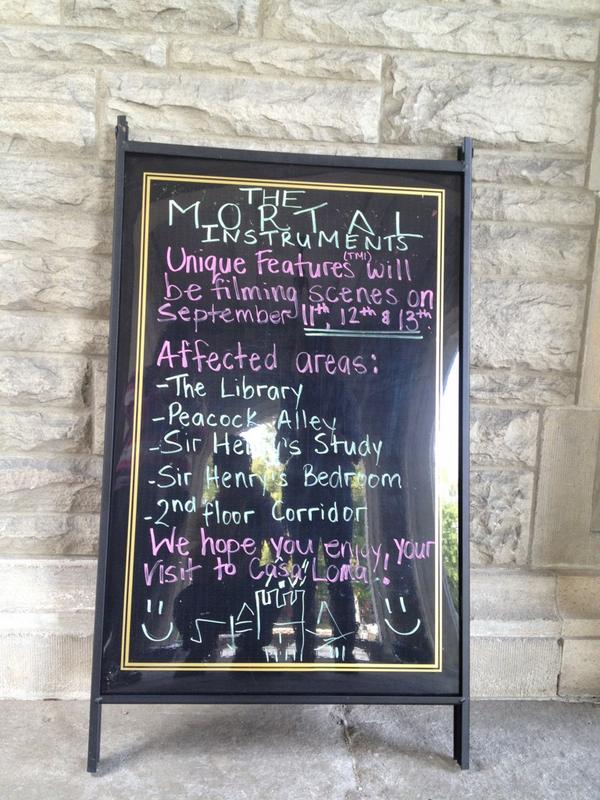 THE
MORTAL
INSTRUMENTS
Unique Features (TMI) will
be filming scenes on
September 11th, 12th & 13th.
Affected areas:
-The Library
-Peacock Alley
-Sir Henry's Study
-Sir Henry's Bedroom
-2nd floor Corridor
We hope you enjoy your
visit to Casa Loma!